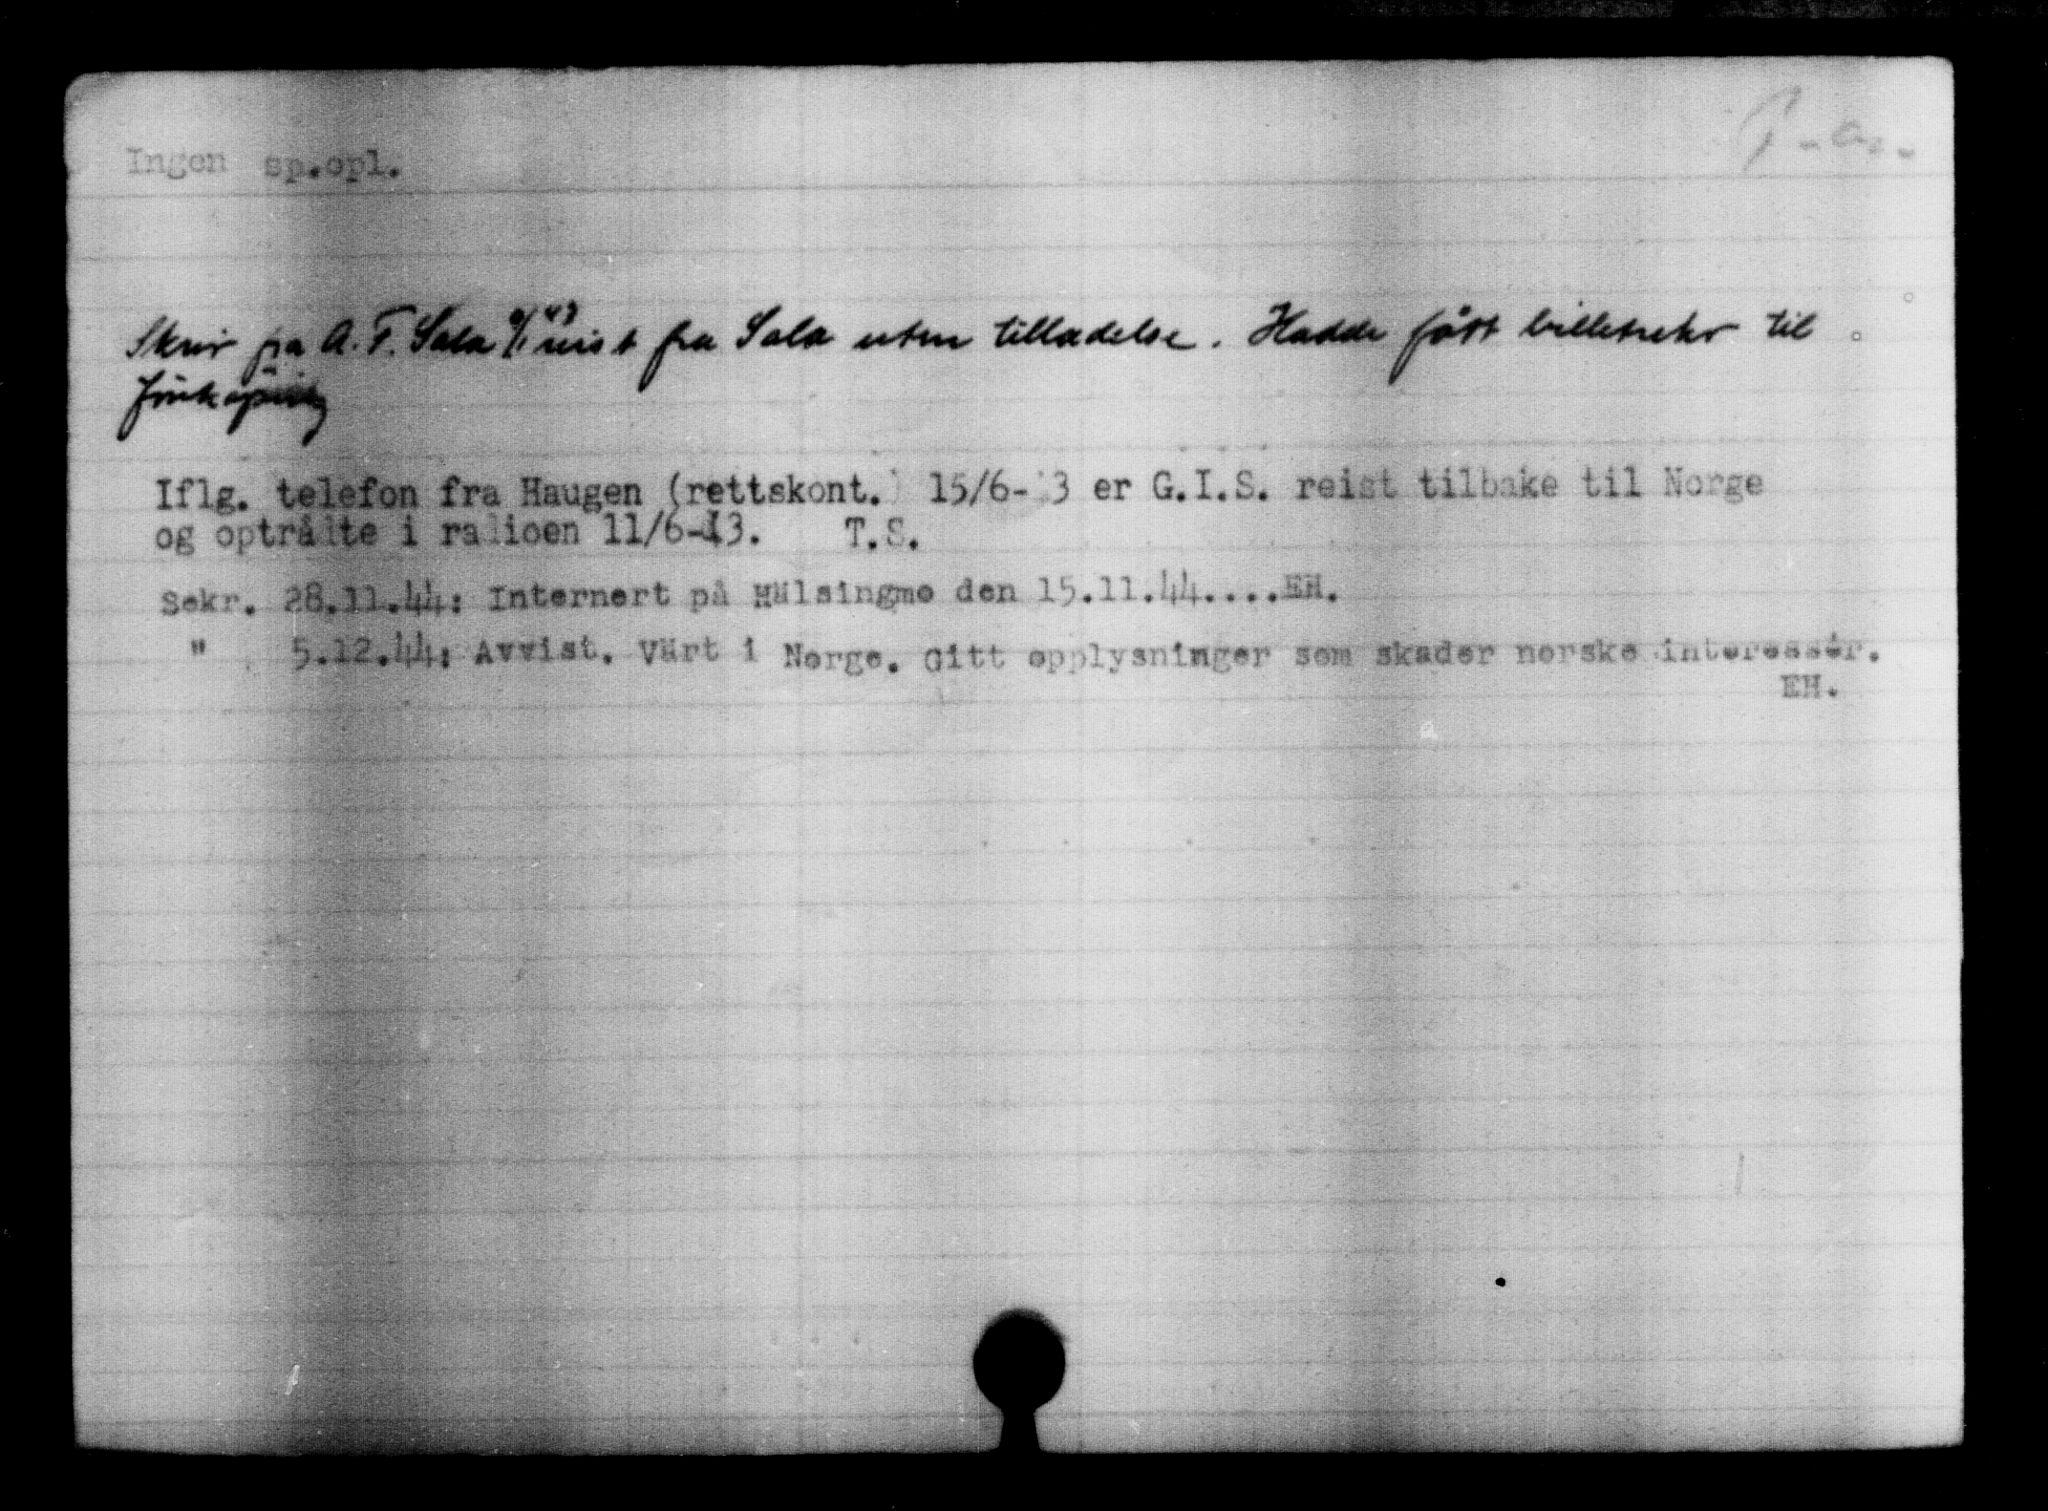 Ingen sp.opl.
Skriv fra A.F. Sala reist fra Sala uten tilladelse. Hadde fått billetrekv til
Jönköping
Iflg. telefon fra Haugen (rettskont.) 15/6-43 er G.I.S. reist tilbake til Norge
og optrådte i radioen 11/6-43. T.S.
Sekr. 28.11.44: Internert på Hälsingmo den 15.11.44....EH.
" 5.12.44: Avvist. Värt i Norge. Gitt opplysninger som skader norske interesser.
EH.